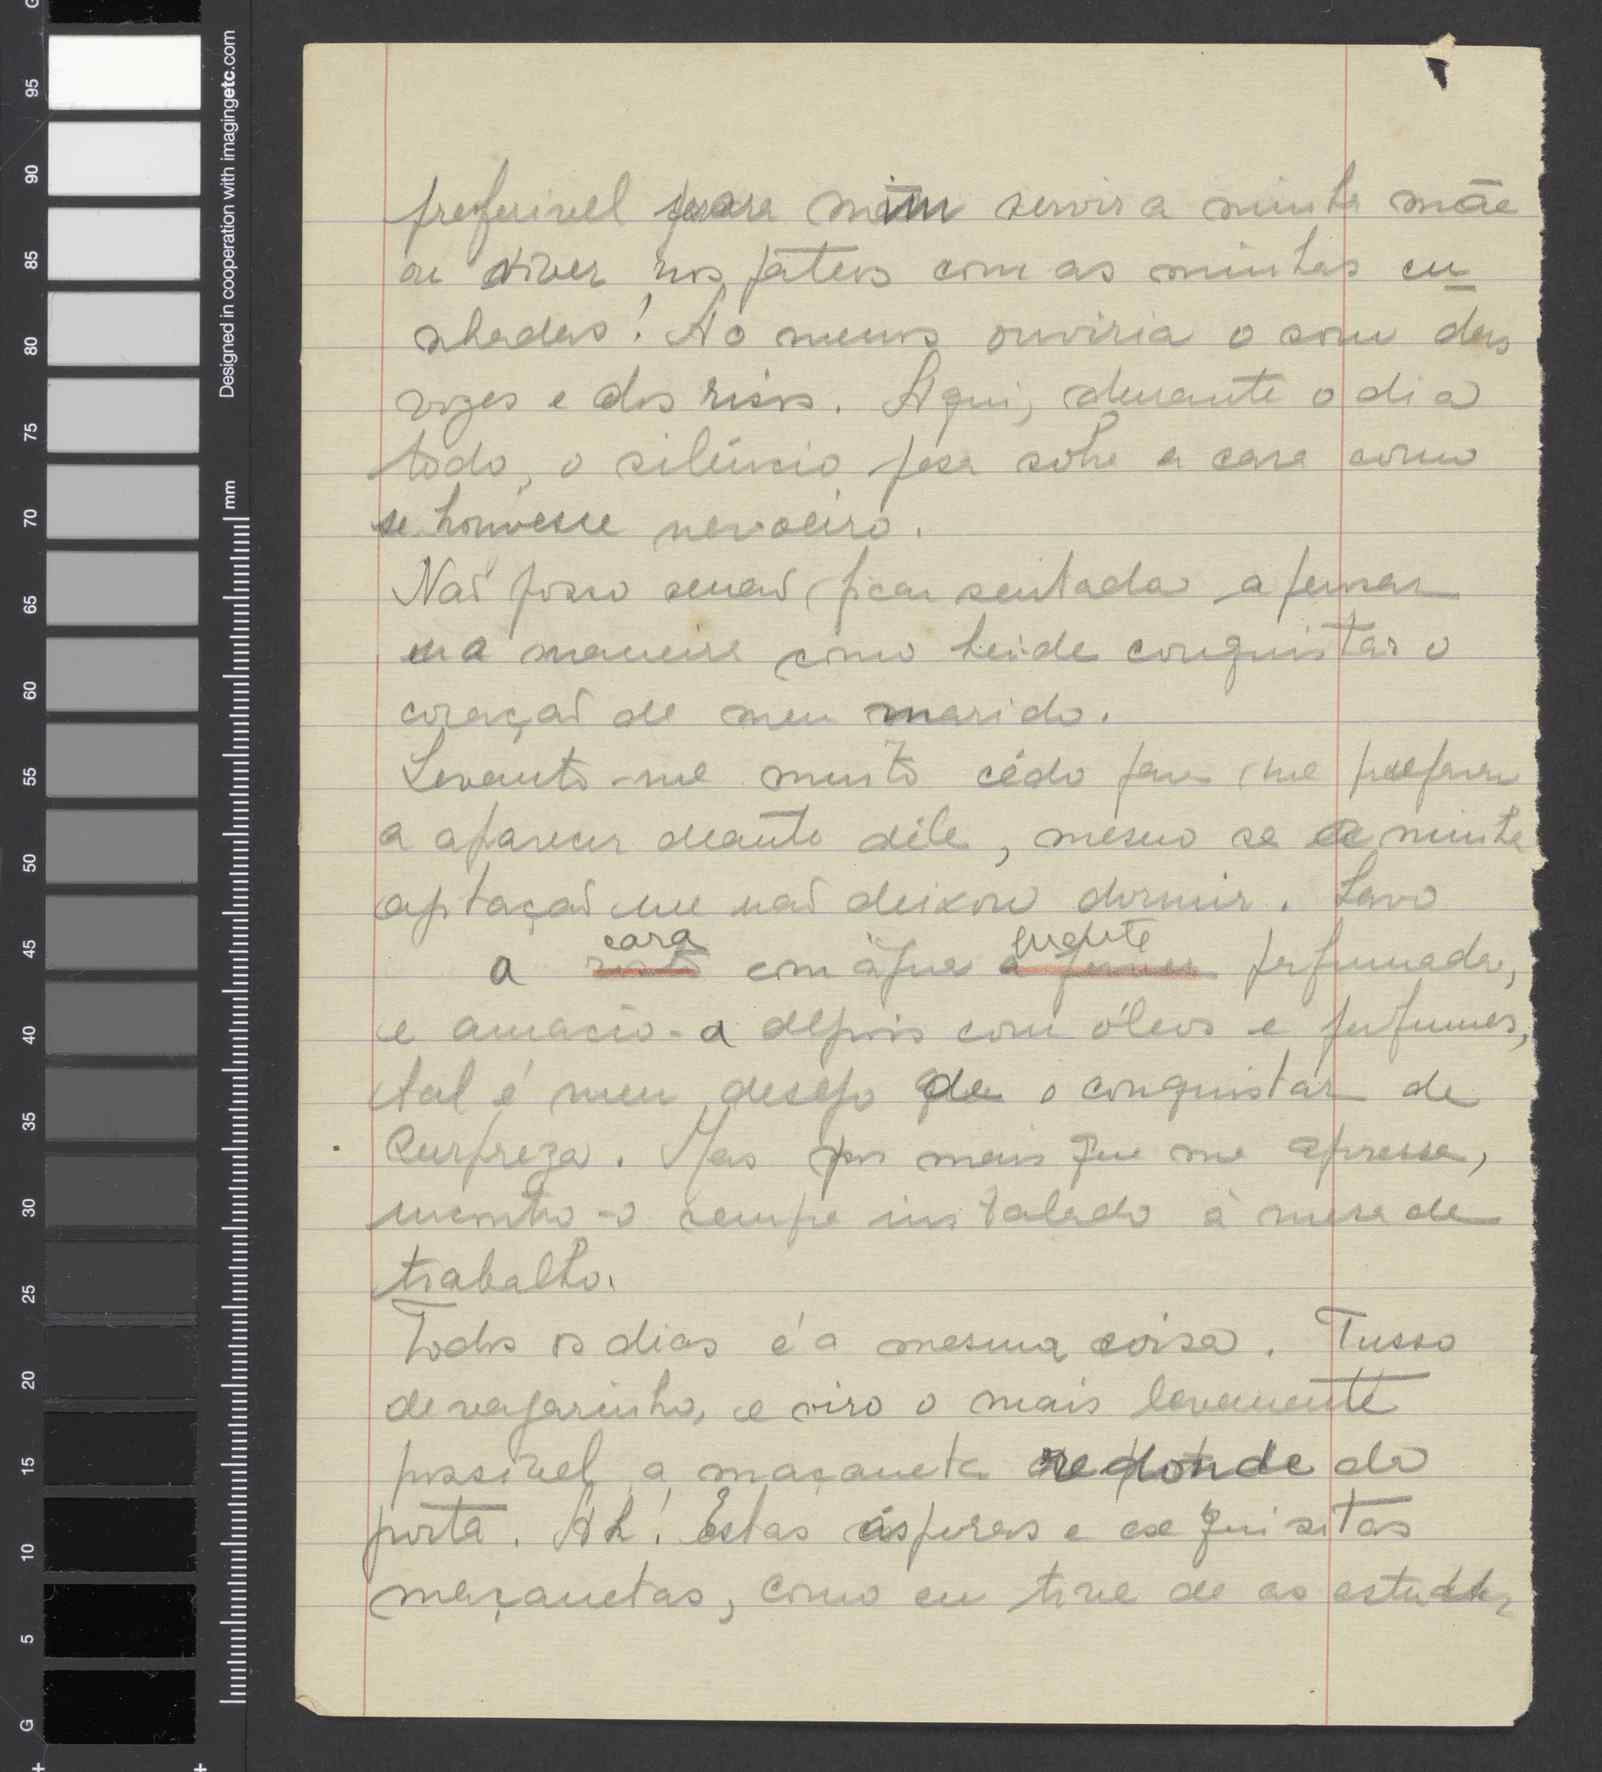 G
95
90
85
80
75
70
65
60
55
50
45
40
35
30
25
20
15
10
5
G
Designed in cooperation with imagingetc.com
mm
preferivel para mim servir a minha mãe
ou viver nos páteos com as minhas cu
nhadas! Ao menos ouviria o som das
vozes e dos risos. Aqui, durante o dia
todo, o silêncio pesa sobre a casa como
se houvesse nevoeiro.
Naõ posso senaõ ficar sentada a pensar
na maneira como hei-de conquistar o
coraçaõ de meu marido.
Levanto-me muito cêdo para me preparar
a aparecer deante dêle, mesmo se a minha
agitaçaõ me naõ deixou dormir. Lavo
cara fuente
a rosto com água a ferver perfumada,
e amacio-a depois com óleos e perfumes,
tal é meu desejo de o conquistar de
surpreza. Mas por mais que me apresse,
encontro-o sempre instalado à mesa de
trabalho.
Todos os dias é a mesma coisa. Tusso
devagarinho, e viro o mais levemente
possivel a maçaneta redonda da
porta. Ah! Estas ásperas e esquisitas
maçanetas, como eu tive de as estudar